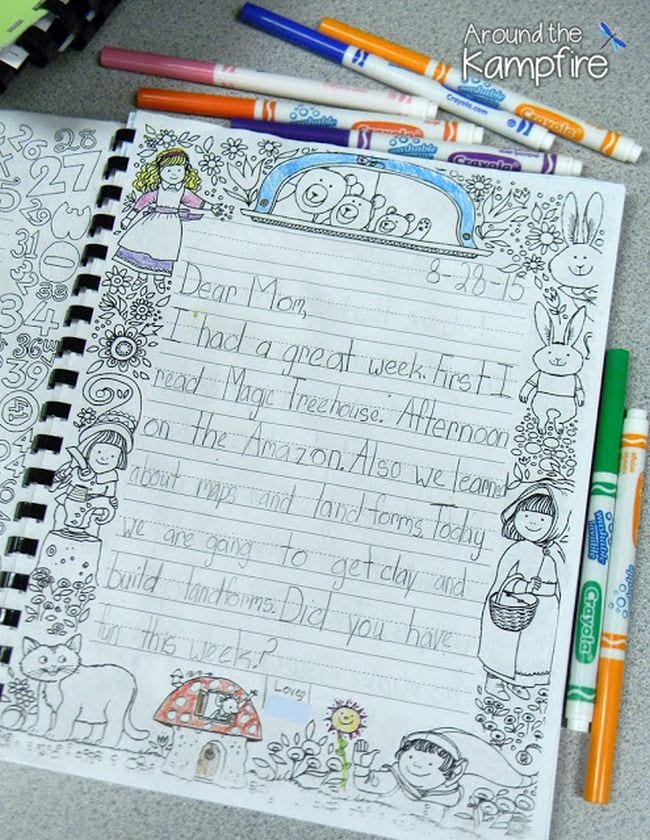 Around the
Kampfire
Crayola
Crayola.com
washable
Crayola
washable
Crayola
28
27
31
39
41
8-28-15
Dear Mom,
I had a great week. First I
read Magic Treehouse: Afternoon
on the Amazon. Also we learned
about maps and landforms. Today
we are going to get clay and
build landforms. Did you have
fun this week?
Love,
washable
Crayola